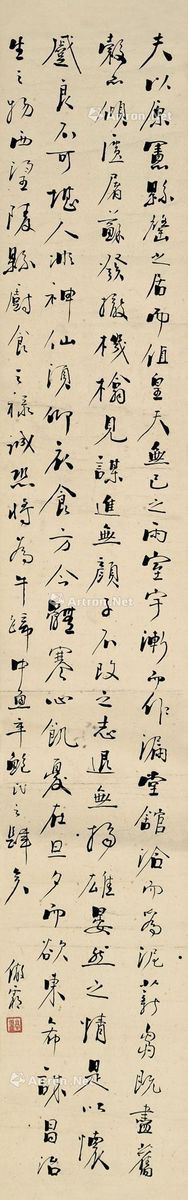 夫以原憲縣罄之居而值皇天無已之雨室宇漸而作漏堂館洽而為泥薪芻既盡舊
穀亦傾匱屠蘇發撤機見謀進無顏子不改之志退無揚雄晏然之情是以懷
戚良不可堪人非神仙須仰衣食方今體寒心飢憂在旦夕而欲東希誅昌治
生之物西望陵縣廚食之祿誠恐將為牛蹄中魚卒鮑氏之肆矣
Artron.Net